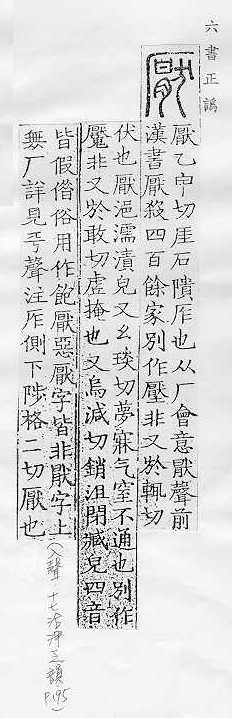 六書正譌
厭乙甲切厓石隤厏也从厂會意猒聲前
漢書厭殺四百餘家別作壓非又於輒切
伏也厭浥濡漬皃又幺琰切夢寐气窒不通也別作
魘非又於敢切虛掩也又烏減切銷沮閉藏皃四音
皆假借俗用作飽厭惡厭字皆非猒字上
無厂詳見平聲注厏側下陟格二切厭也
(入聲 十七洽淨三韻
P.195)